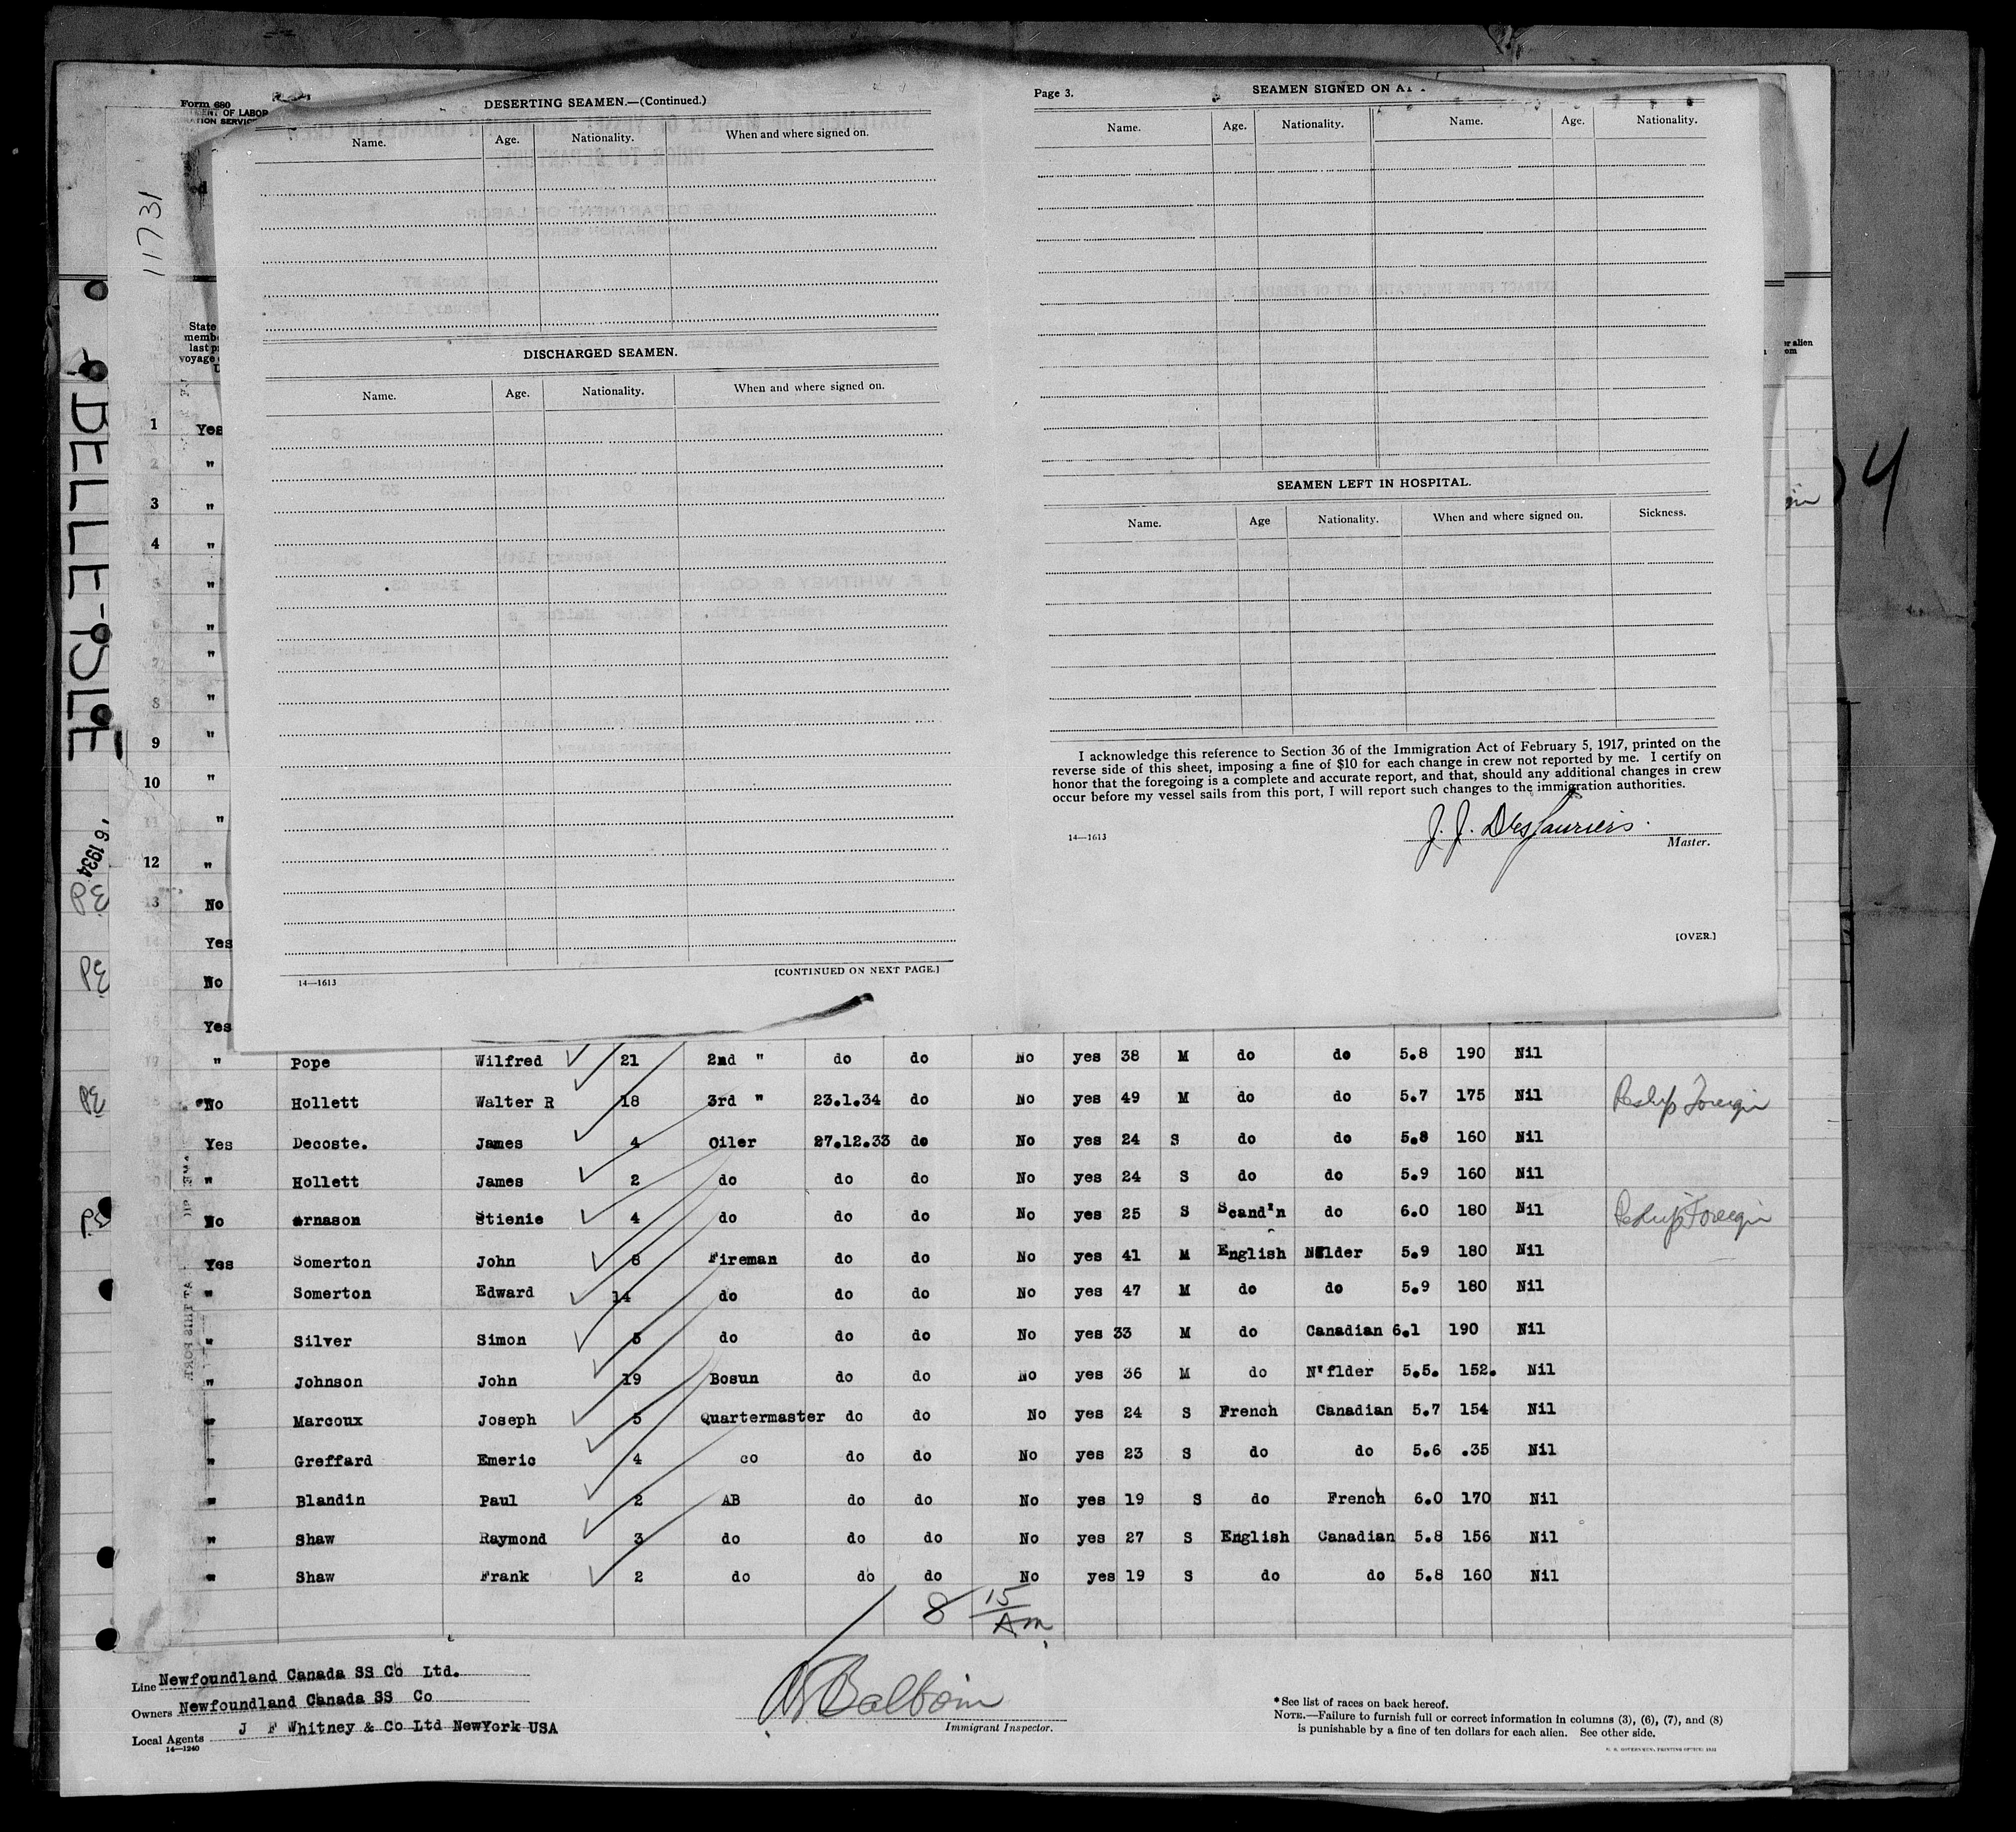 Form 680
DESERTING SEAMEN.—(Continued.)
Name. Age. Nationality. When and where signed on.
DISCHARGED SEAMEN.
Name. Age. Nationality. When and where signed on.
14—1613
[CONTINUED ON NEXT PAGE.]
Page 3.
SEAMEN SIGNED ON
Name. Age. Nationality. Name. Age. Nationality.
SEAMEN LEFT IN HOSPITAL.
Name. Age Nationality. When and where signed on. Sickness.
I acknowledge this reference to Section 36 of the Immigration Act of February 5, 1917, printed on the
reverse side of this sheet, imposing a fine of $10 for each change in crew not reported by me. I certify on
honor that the foregoing is a complete and accurate report, and that, should any additional changes in crew
occur before my vessel sails from this port, I will report such changes to the immigration authorities.
14—1613
J. J. DesLauriers.
Master.
[OVER.]
11731
BELLE-ISLE
1934
4
1 Yes
2 "
3 "
4 "
5 "
6 "
7 "
8 "
9 "
10 "
11 "
12 "
13 No
14 Yes
15 No
16 Yes
17 " Pope Wilfred 21 2nd " do do No yes 38 M do do 5.8 190 Nil
18 No Hollett Walter R 18 3rd " 23.1.34 do No yes 49 M do do 5.7 175 Nil Reship Foreign
19 Yes Decoste. James 4 Oiler 27.12.33 do No yes 24 S do do 5.8 160 Nil
20 " Hollett James 2 do do do No yes 24 S do do 5.9 160 Nil
21 No arnason Stienie 4 do do do No yes 25 S Scand'n do 6.0 180 Nil Reship Foreign
Yes Somerton John 8 Fireman do do No yes 41 M English Nflder 5.9 180 Nil
" Somerton Edward 14 do do do No yes 47 M do do 5.9 180 Nil
" Silver Simon 5 do do do No yes 33 M do Canadian 6.1 190 Nil
" Johnson John 19 Bosun do do No yes 36 M do N'flder 5.5. 152. Nil
" Marcoux Joseph 5 Quartermaster do do No yes 24 S French Canadian 5.7 154 Nil
" Greffard Emeric 4 co do do No yes 23 S do do 5.6 .35 Nil
" Blandin Paul 2 AB do do No yes 19 S do French 6.0 170 Nil
" Shaw Raymond 3 do do do No yes 27 S English Canadian 5.8 156 Nil
" Shaw Frank 2 do do do No yes 19 S do do 5.8 160 Nil
8 15/Am
Line Newfoundland Canada SS Co Ltd.
Owners Newfoundland Canada SS Co
Local Agents J F Whitney & Co Ltd NewYork USA
14—1240
Immigrant Inspector.
* See list of races on back hereof.
NOTE.—Failure to furnish full or correct information in columns (3), (6), (7), and (8)
is punishable by a fine of ten dollars for each alien. See other side.